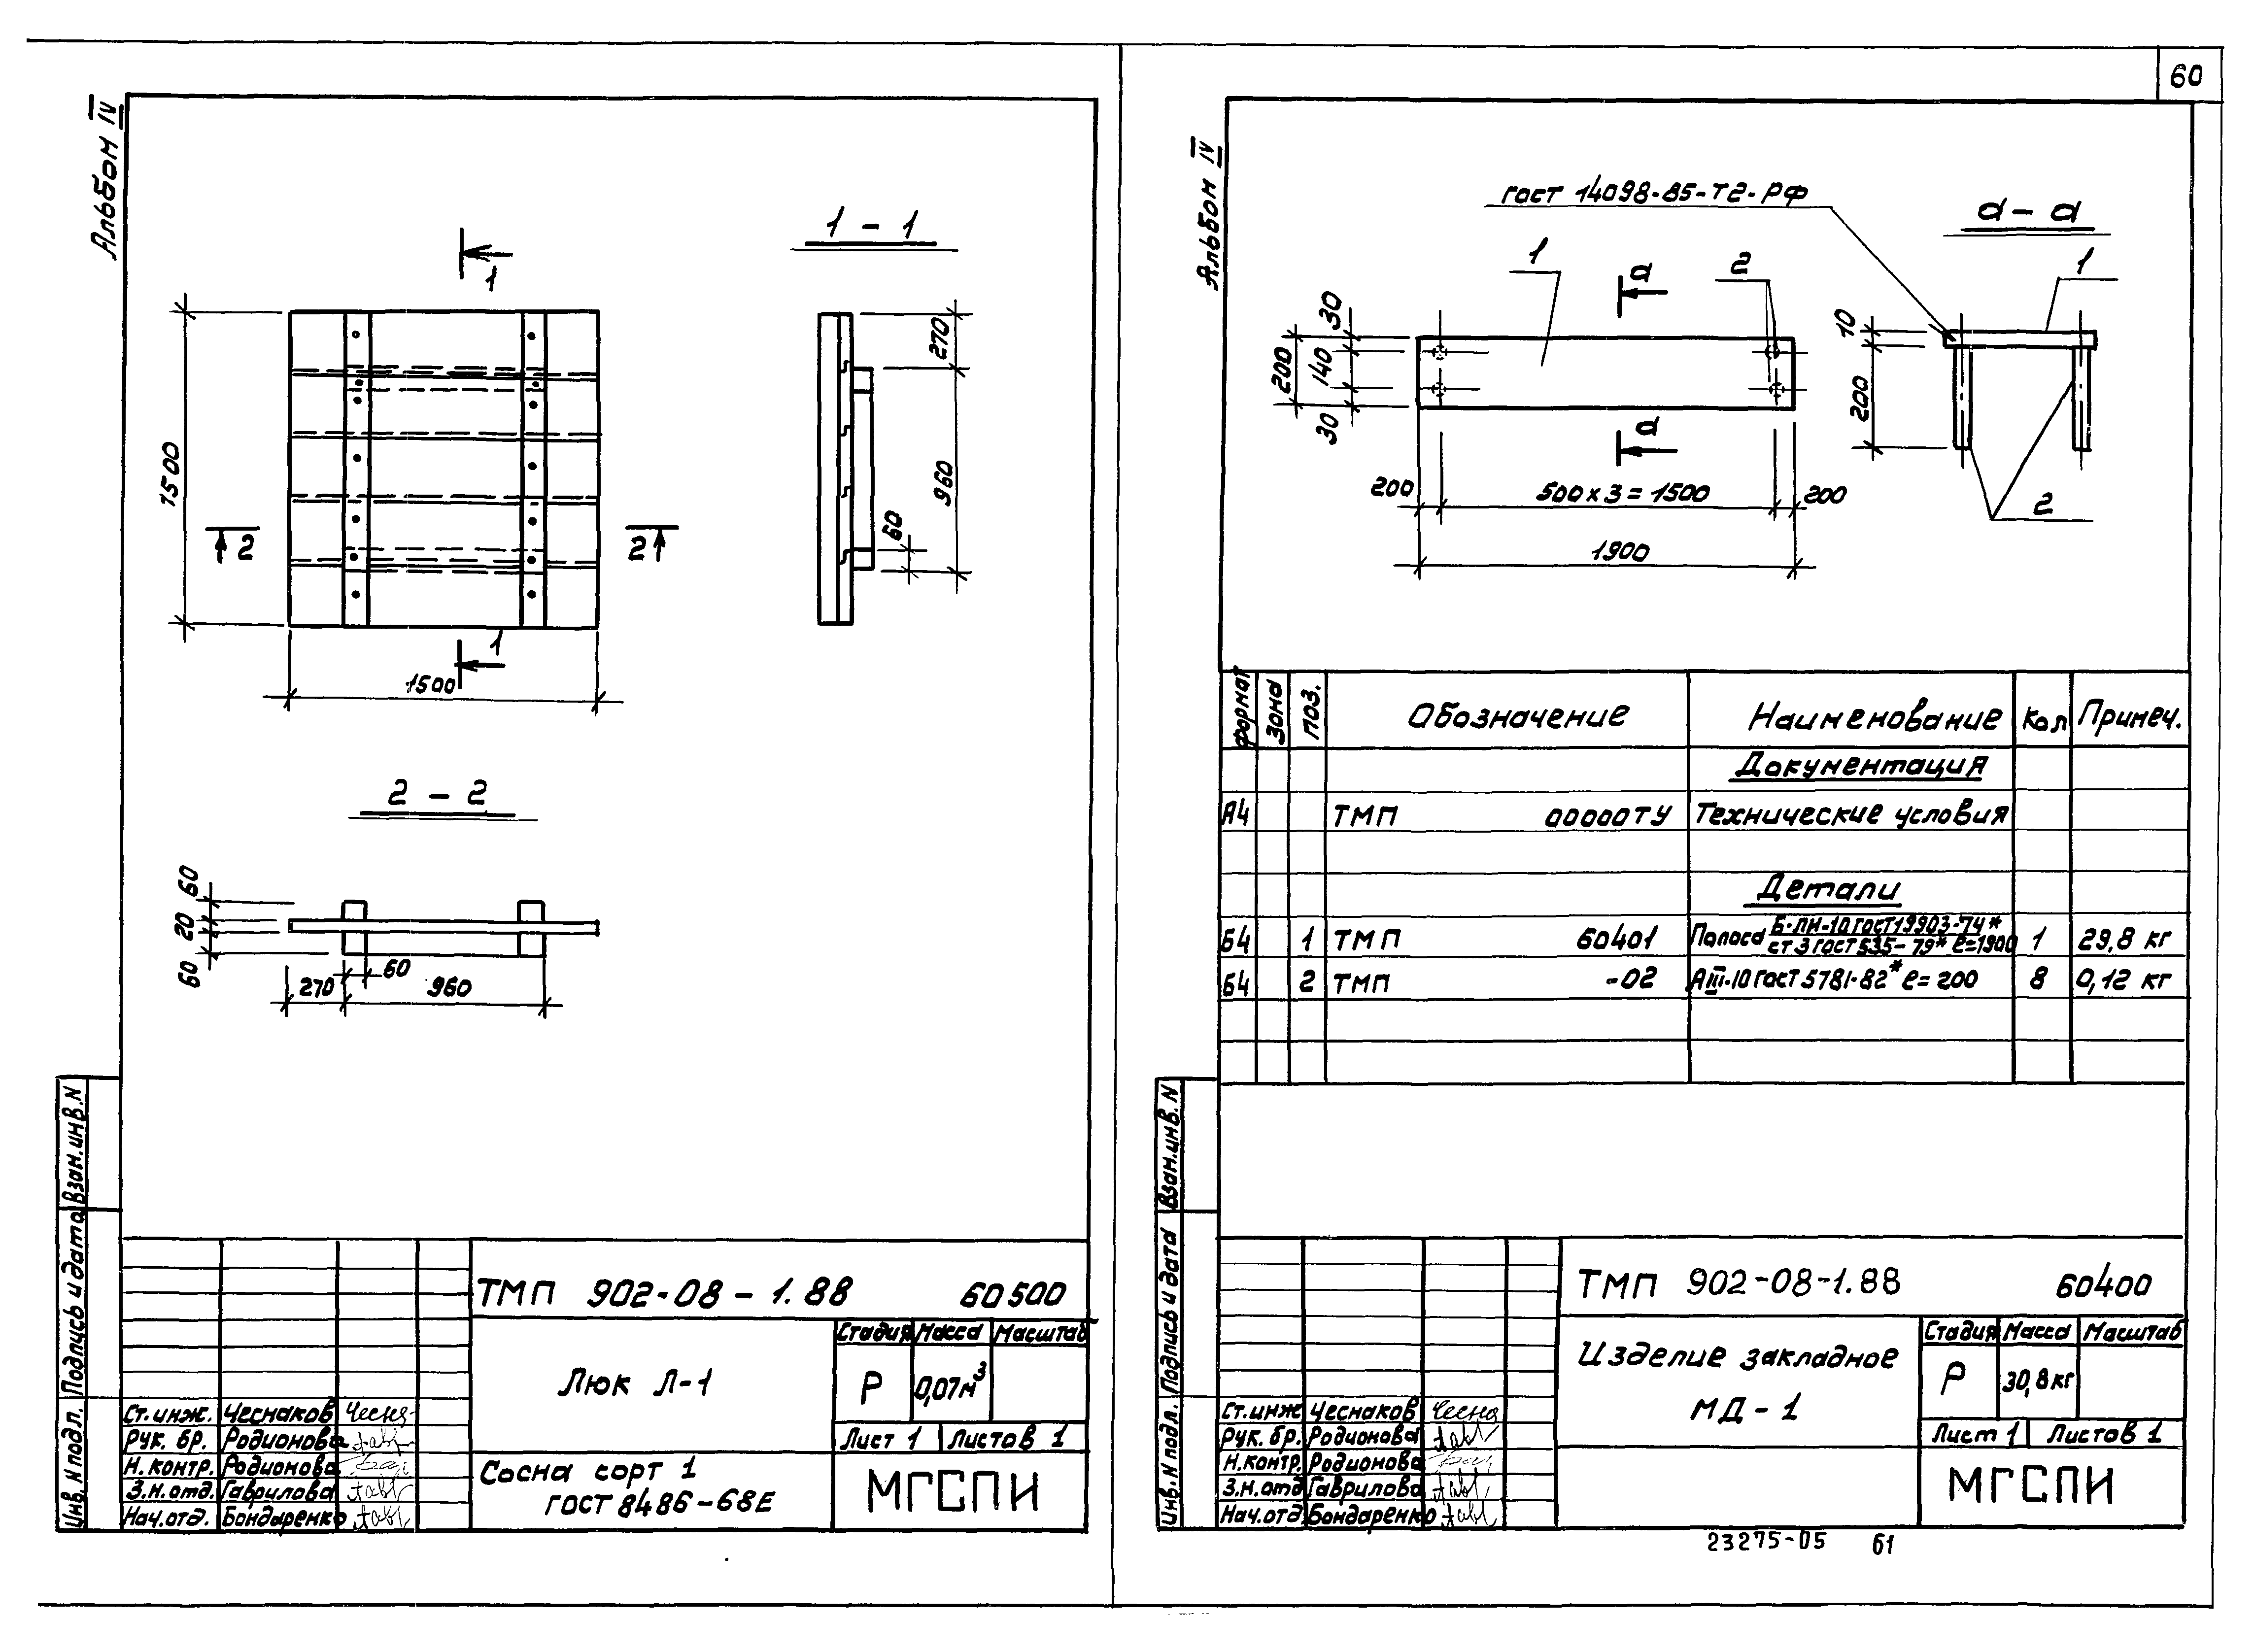 60
Альбом IV
1
1 - 1
1500
2
2
1
1500
270
960
60
2 - 2
60
20
60
60
270
960
Взам.инв.N
Подпись и дата
Инв.N подл.
ТМП 902-08-1.88 60500
Стадия Масса Масштаб
Люк Л-1
Р 0,07м³
Лист 1 Листов 1
Ст.инж. Чеснаков
Рук. бр. Родионова
Н.контр. Родионова
З.н.отд. Гаврилова
Нач.отд. Бондаренко
Сосна сорт 1
ГОСТ 8486-68Е
МГСПИ
Альбом IV
ГОСТ 14098-85-Т2-РФ
а - а
1
а
2
1
30
200
140
30
10
200
а
200
500 x 3 = 1500
200
2
1900
Формат Зона Поз. Обозначение Наименование Кол Примеч.
Документация
А4 ТМП 00000ТУ Технические условия
Детали
Б4 1 ТМП 60401 Полоса Б-ПН-10 ГОСТ 19903-74* 1 29,8 кг
Ст 3 ГОСТ 535-79* ℓ=1900
Б4 2 ТМП -02 АIII-10 ГОСТ 5781-82* ℓ= 200 8 0,12 кг
Взам.инв.N
Подпись и дата
Инв.N подл.
ТМП 902-08-1.88 60400
Изделие закладное
МД-1
Стадия Масса Масштаб
Р 30,8кг
Лист 1 Листов 1
Ст.инж Чеснаков
Рук. бр. Родионова
Н.контр. Родионова
З.н.отд Гаврилова
Нач.отд Бондаренко
МГСПИ
23275-05 61